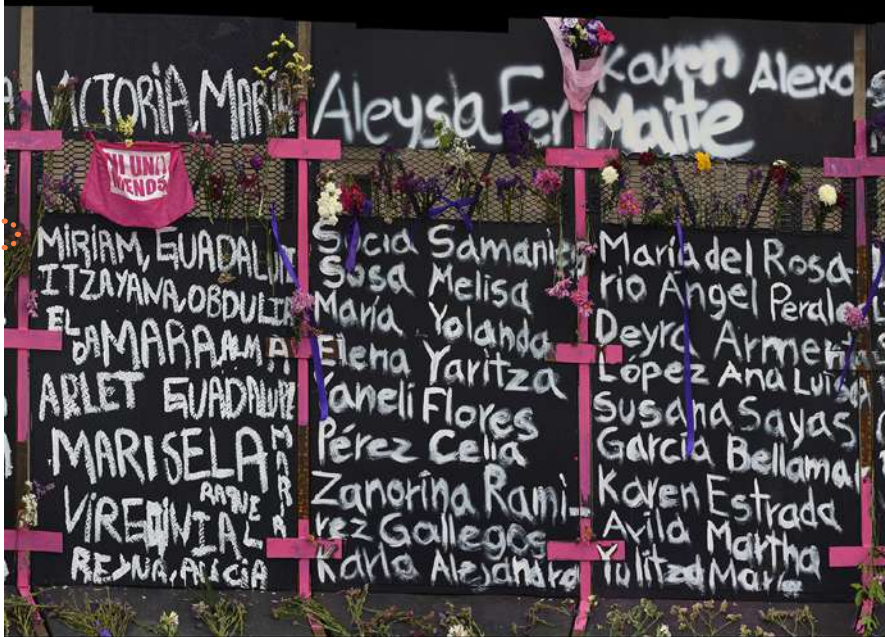 VICTORIA, MARÍA
Aleysla Fer
Karen Alexa
Maite
NI UNA
MENOS
MIRIAM, GUADALU
ITZAYANA OBDULIA
EL
DAMARA ALMA
ARLET GUADALUPE
MARISELA
RAQUEL
MAR
REYNA, ALICIA
Samanie
Sosa Melisa
María Yolanda
Elena Yaritza
Yaneli Flores
Pérez Celia
Zanorina Rami-
rez Gallegos
Karla Alejandra
María del Rosa
rio Ángel Perale
Deyra Armenta
López Ana Luisa
Susana Sayas
García Bellamar
Karen Estrada
Avila Martha
Yulitza María